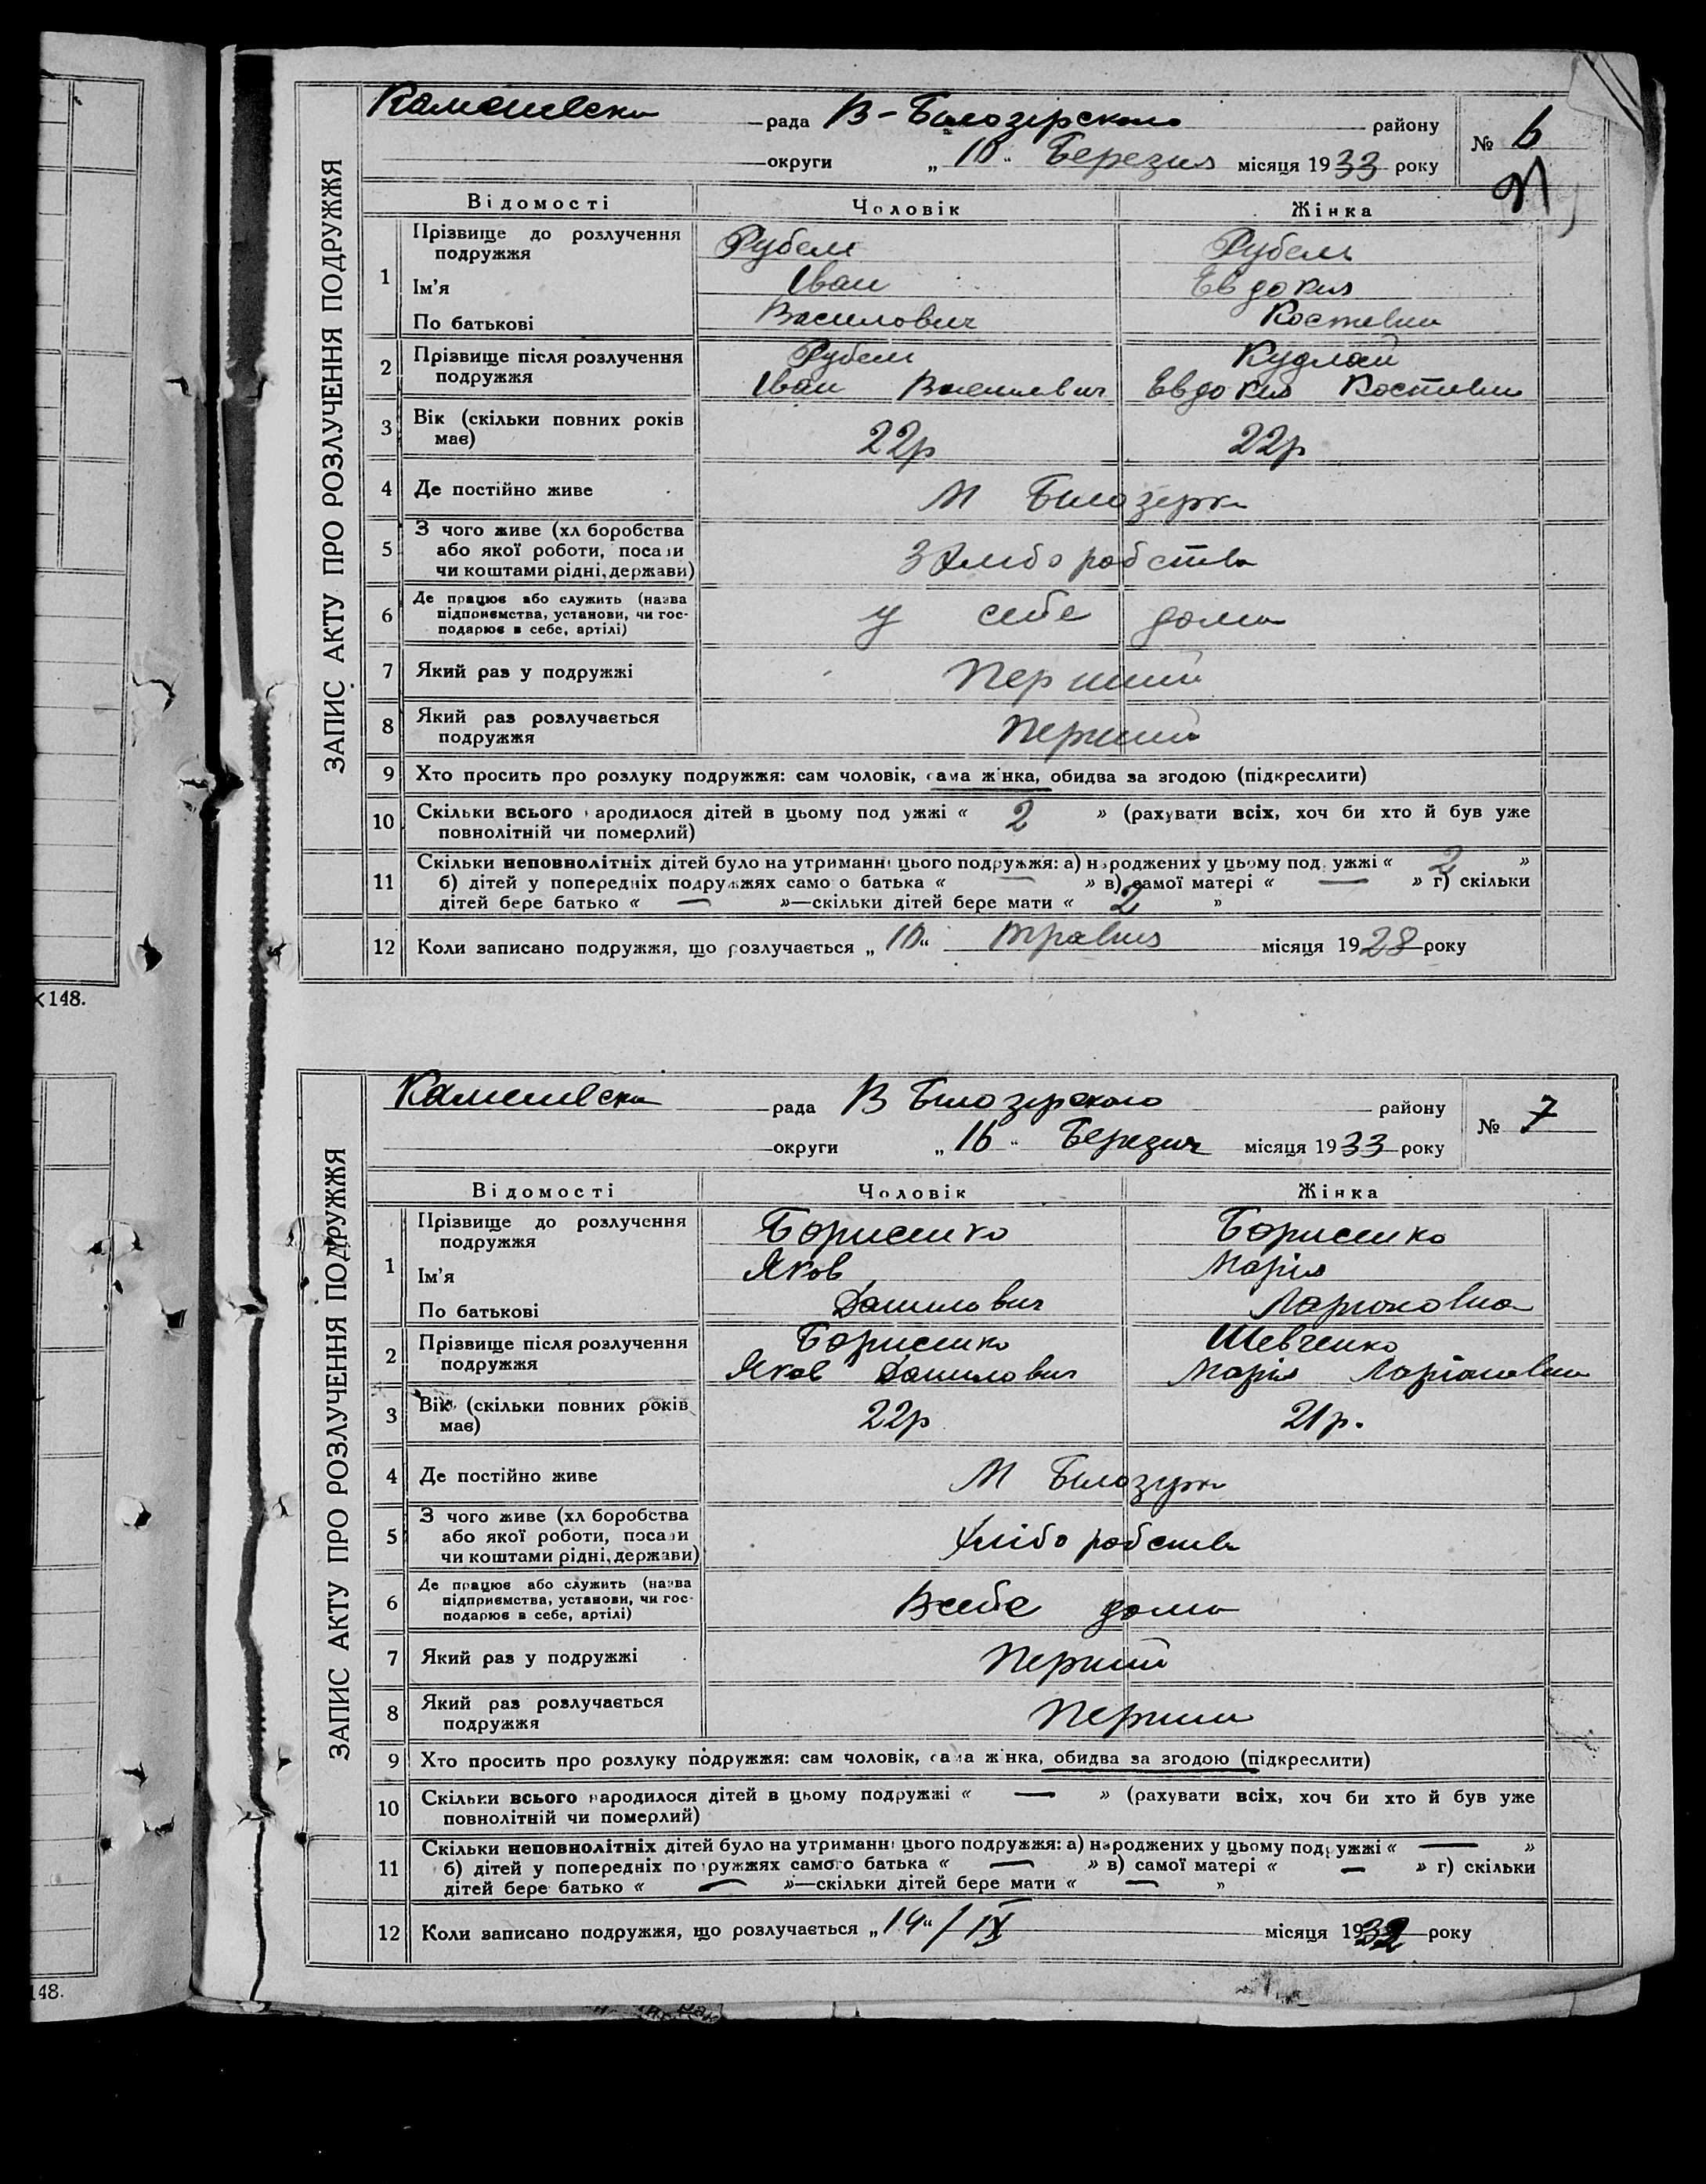 ЗАПИС АКТУ ПРО РОЗЛУЧЕННЯ ПОДРУЖЖЯ
рада В-Білозірского району
округи „10“ Березня місяця 1933 року
№ 6
Відомості Чоловік Жінка
1 Прізвище до розлучення подружжя Рубель Рубель
Ім'я Іван Евдокия
По батькові Василович Костивна
2 Прізвище після розлучення подружжя Рубель Кудлай
Іван Василевич Евдокия Костивна
3 Вік (скільки повних років має) 22р 22р
4 Де постійно живе М Білозерка
5 З чого живе (хл боробства
або якої роботи, посади
чи коштами рідні, держави) З Хлиборобства
6 Де працює або служить (назва
підприємства, установи, чи гос-
подарює в себе, артілі) у себе дома
7 Який раз у подружжі Перший
8 Який раз розлучається подружжя Перший
9 Хто просить про розлуку подружжя: сам чоловік, сама жінка, обидва за згодою (підкреслити)
10 Скільки всього народилося дітей в цьому подружжі « 2 » (рахувати всіх, хоч би хто й був уже
повнолітній чи померлий)
11 Скільки неповнолітніх дітей було на утриманні цього подружжя: а) народжених у цьому подружжі « 2 »
б) дітей у попередніх подружжях самого батька « — » в) самої матері « — » г) скільки
дітей бере батько « — »—скільки дітей бере мати « 2 »
12 Коли записано подружжя, що розлучається „10“ Травня місяця 1928 року
×148.
ЗАПИС АКТУ ПРО РОЗЛУЧЕННЯ ПОДРУЖЖЯ
рада В Білозірского району
округи „16“ Березня місяця 1933 року
№ 7
Відомості Чоловік Жінка
1 Прізвище до розлучення подружжя Борисенко Борисенко
Ім'я Яков Марія
По батькові Данилович Ларионовна
2 Прізвище після розлучення подружжя Борисенко Шевченко
Яков Данилович Марія Ларіоновна
3 Вік (скільки повних років має) 22р 21р.
4 Де постійно живе М Білозерка
5 З чого живе (хл боробства
або якої роботи, посади
чи коштами рідні, держави) Хліборобства
6 Де працює або служить (назва
підприємства, установи, чи гос-
подарює в себе, артілі) Всебе дома
7 Який раз у подружжі Перший
8 Який раз розлучається подружжя Перший
9 Хто просить про розлуку подружжя: сам чоловік, сама жінка, обидва за згодою (підкреслити)
10 Скільки всього народилося дітей в цьому подружжі « — » (рахувати всіх, хоч би хто й був уже
повнолітній чи померлий)
11 Скільки неповнолітніх дітей було на утриманні цього подружжя: а) народжених у цьому подружжі « — »
б) дітей у попередніх подружжях самого батька « — » в) самої матері « — » г) скільки
дітей бере батько « — »—скільки дітей бере мати « — »
12 Коли записано подружжя, що розлучається „14“/IX місяця 1932 року
148.